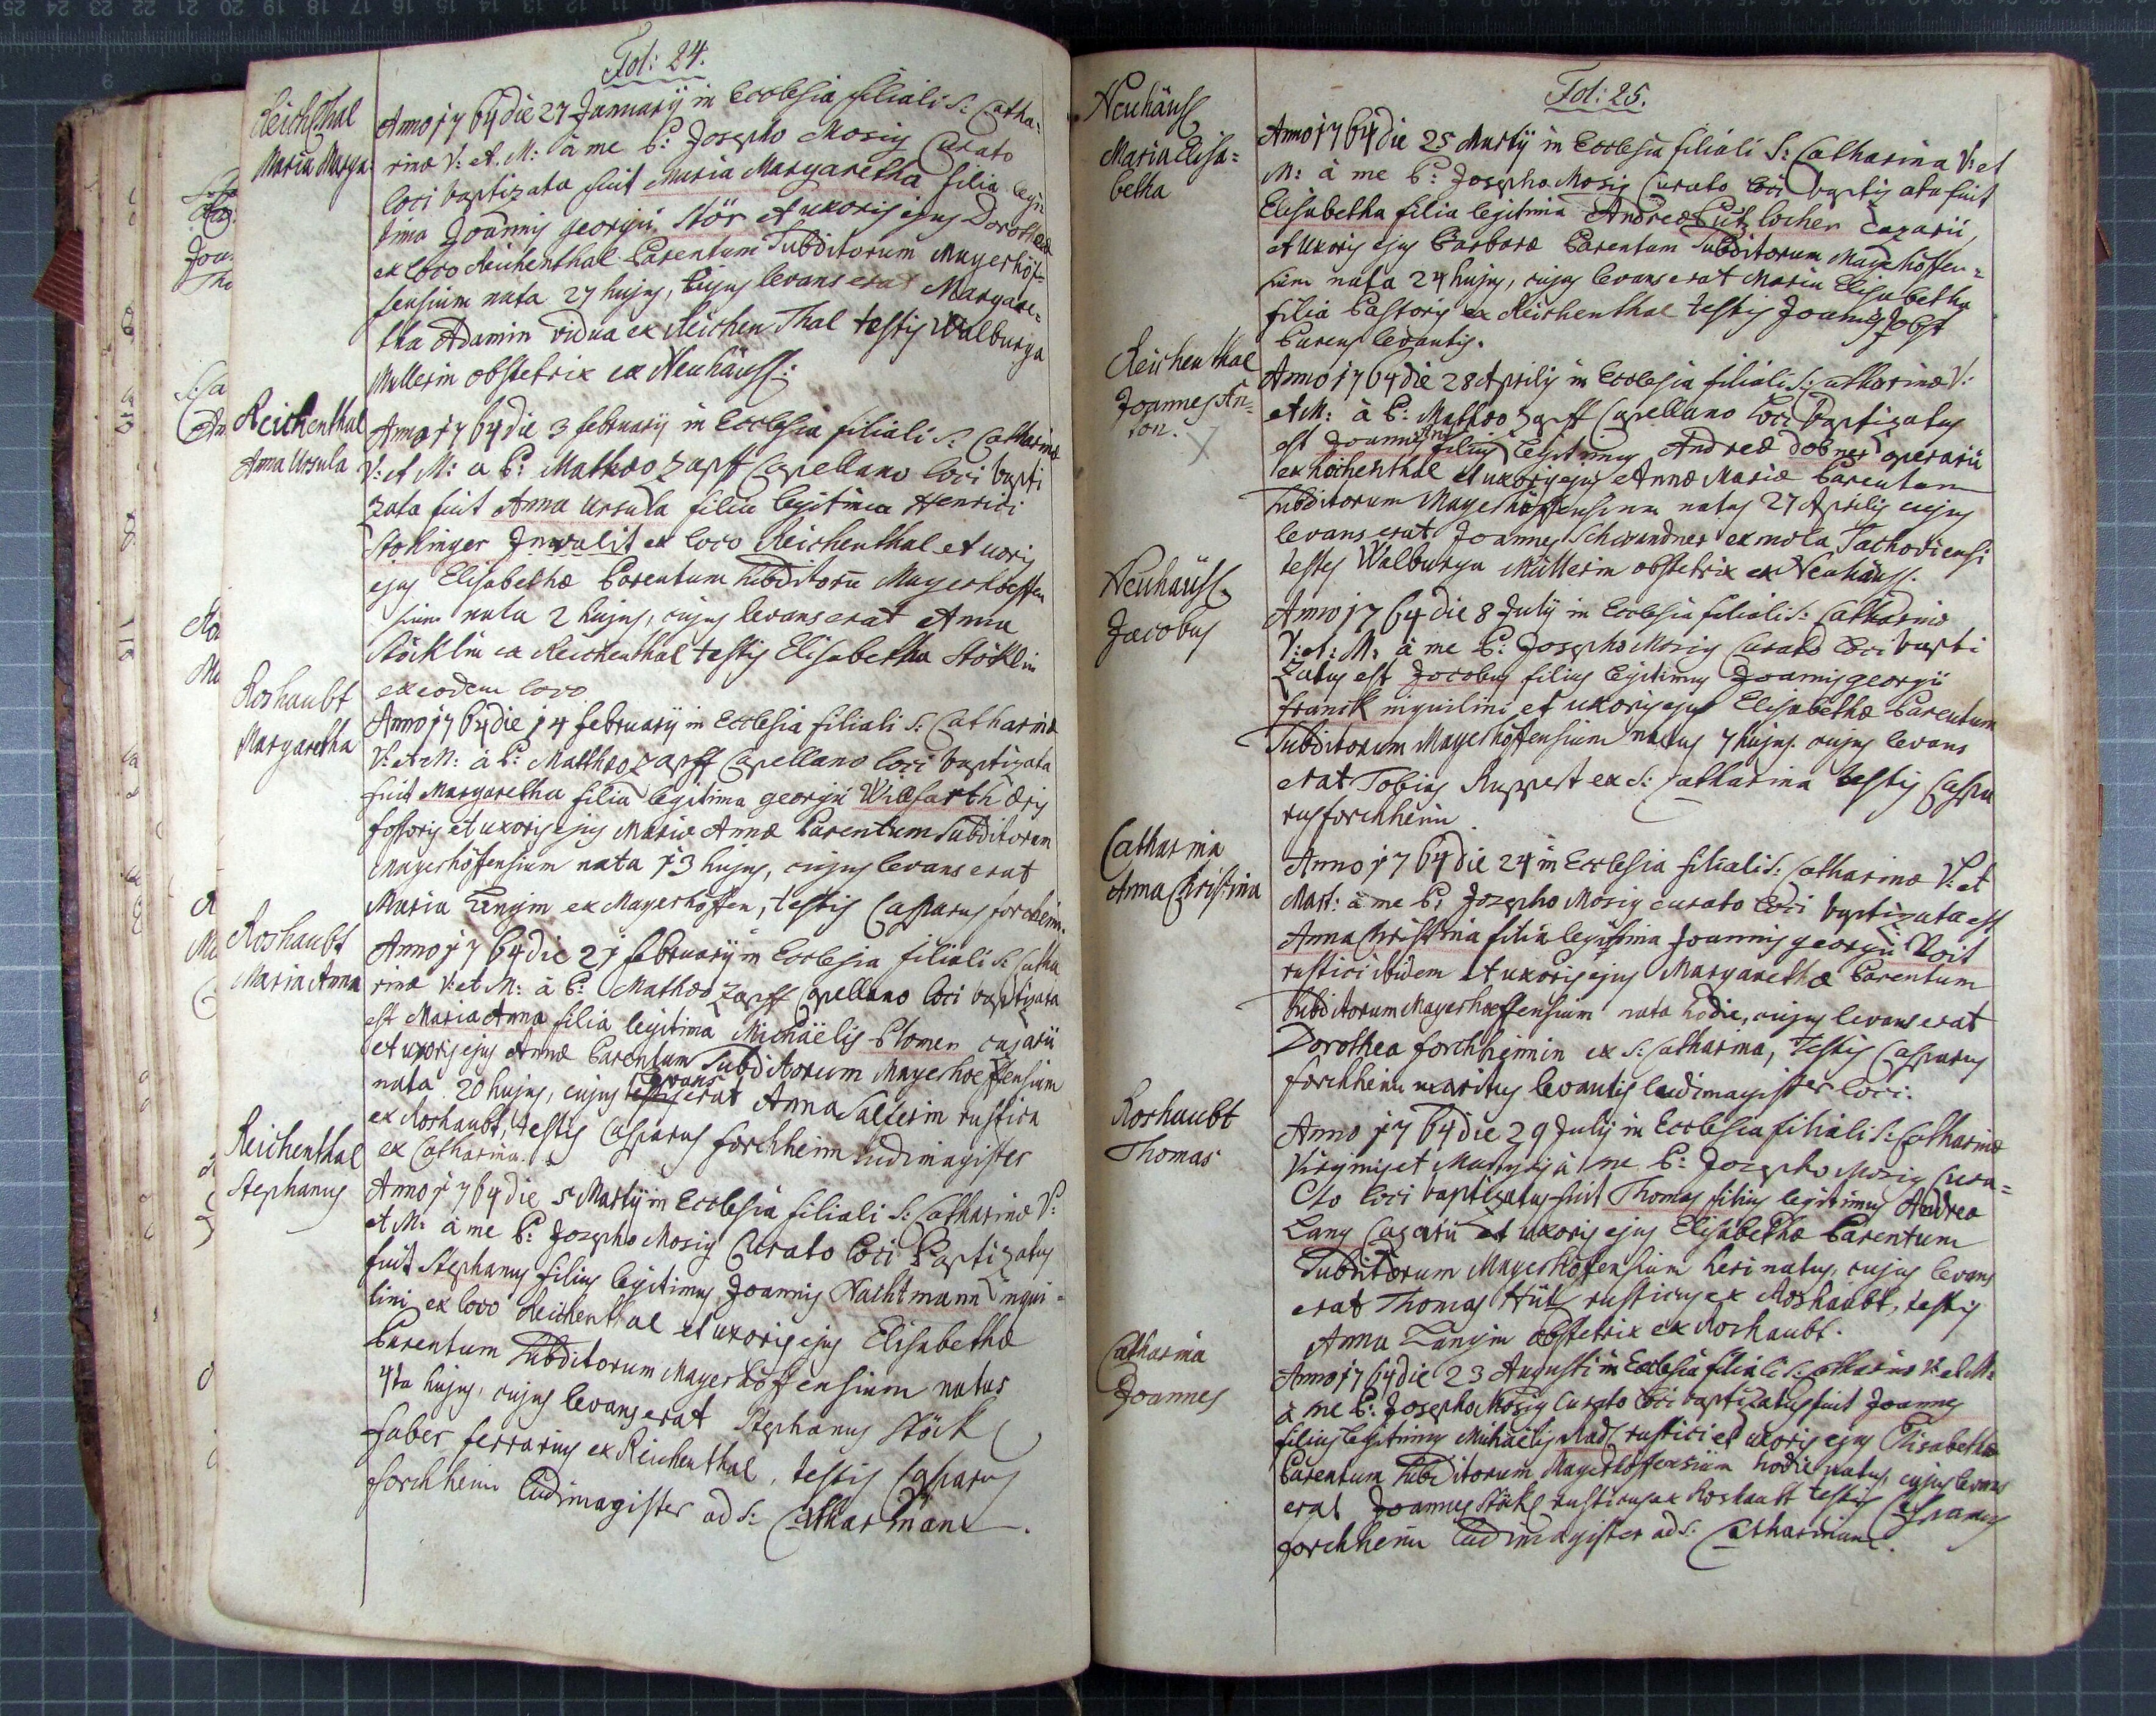 Fol: 24.
Reichthal
Maria Marga:
Anno 1764 die 27 January in Ecclesia filiali S: Catha:
rinæ V: et. M: à me P: Josepho Mosig Curato
loci baptizata fuit Maria Margaretha filia legi
tima Joannis georgii Stör et uxoris ejus Dorotheæ
ex loco Reichenthal Parentum Subditorum Mayerhöf=
fensium nata 27 hujus, Cujus levans erat Margare=
tha Adamin vidua ex Reichen Thal testis Walburga
Mullerin obstetrix ex Neuhäusl:
Reichenthal
Anna Ursula
Anno 1764 die 3 february in Ecclesia filiali S: Catharinæ
V: et M: a P: Mathæo Zapff Capellano loci bapti
zata fuit Anna Ursula filia legitima Henrici
Stokinger Invalit ex loco Reichenthal et uxoris
ejus Elisabethæ Parentum Subditorū Mayerhoeffen
sium nata 2 hujus, cujus levans erat Anna
Stöcklin ex Reichenthal testis Elisabetha Stöklin
ex eodem loco
Roshaubt
Margaretha
Anno 1764 die 14 february in Ecclesia filiali S: Catharinæ
V: et M: à P: Matthæo Zapff Capellano loci baptizata
fuit Margaretha filia legitima georgii Wilfarth æris
fossoris et uxoris ejus Mariæ Annæ Parentum Subditorum
Mayerhöffensium nata 13 hujus, cujus levans erat
Maria Lengin ex Mayerhoffen, testis Casparus forchheim.
Roshaubt
Maria Anna
Anno 1764 die 21 february in Ecclesia filiali S: Catha
rinæ V: et M: à P: Mathæo Zapff Capellano loci baptizata
est Maria Anna filia legitima Michäelis Plomen casarii
et uxoris ejus Annæ Parentum Subditorum Mayerhoeffensium
nata 20 hujus, cujus levans erat Anna Salterin rustica
ex Roshaubt, testis Casparus forchheim ludimagister
ex Catharina.
Reichenthal
Stephanus
Anno 1764 die 5 Martÿ in Ecclesia filiali S: Catharinæ V:
et M: à me P: Josepho Mosig Curato loci Baptizatus
fuit Stephanus filius legitimus Joannis Nachtmann inqui=
lini ex loco Reichenthal et uxoris ejus Elisabethæ
Parentum Subditorum Mayerhöffensium natus
4ta hujus, cujus levans erat Stephanus Stöck
faber ferrarius ex Reichenthal, testis Casparus
forchheim Ludimagister ad S: Catharinam.
Fol: 25.
Neuhäusl
Maria Elisa=
betha
Anno 1764 die 25 Martÿ in Ecclesia filiali S: Catharina V: et
M: à me P: Josepho Mosig Curato loci baptizata fuit
Elisabetha filia legitima Andreæ Pütz locher Cazarii,
et uxoris ejus Barbaræ Parentum Subditorum Mayerhöffen=
sium nata 24 hujus, cujus levans erat Maria Elisabetha
filia Pastoris ex Reichenthal testis Joannes Jobst
Parens levantis.
Reichenthal
Joannes An=
ton.
Anno 1764 die 28 Aprilis in Ecclesia filiali S: Catharinæ V:
et M: à P: Mathæo Zapff Capellano loci baptizatus
est Joannes Ant filius legitimus Andreæ Dobner operarii
ex Reichenthal et uxoris ejus Annæ Mariæ Parentum
Subditorum Mayerhöffensium natus 27 Aprilis cujus
levans erat Joannes Schwandner ex mola Tachoviensi
testis Walburga Müllerin obstetrix ex Neuhäusl.
Neuhäusl
Jacobus
Anno 1764 die 8 July in Ecclesia filiali S: Catharinæ
V: et: M: à me P: Josepho Mosig Curato loci bapti
zatus est Jacobus filius legitimus Joannis georgii
franck inquilini et uxoris ejus Elisabethæ Parentum
Subditorum Mayerhöffensium natus 7 hujus. cujus levans
erat Tobias Ruppert ex S: Catharina testis Caspa
rus forchheim
Catharina
Anna Christina
Anno 1764 die 24 in Ecclesia filiali S: Catharinæ V: et
Mart: à me P: Josepho Mosig curato loci baptizata est
Anna Christina filia legitima Joannis georgii Voit
rustici ibidem et uxoris ejus Margarethæ Parentum
Subditorum Mayerhoeffensium nata hodie, cujus levans erat
Dorothea forchheimin ex S: Catharina, Testis Casparus
forchheim maritus levantis ludimagister loci.
Roshaubt
Thomas
Anno 1764 die 29 July in Ecclesia filiali S: Catharinæ
Virginis et Martyris à me P: Josepho Mosig Cura=
to loci baptizatus fuit Thomas filius legitimus Andreæ
Lang Casarii et uxoris ejus Elisabethæ Parentum
Subditorum Mayerhöfensium heri natus, cujus levans
erat Thomas Hüth rusticus ex Roshaubt, testis
Anna Langin obstetrix ex Roshaubt.
Catharina
Joannes
Anno 1764 die 23 Augusti in Ecclesia filiali S: Catharinæ V: et M:
à me P: Josepho Mosig Curato loci baptizatus fuit Joannes
filius legitimus Michaelis Radl rustici et uxoris ejus Elisabethæ
Parentum Subditorum Mayerhöffensium hodie natus, cujus levans
erat Joannes Stöckl rusticus ex Roshaubt testis Casparus
forchheim Ludimagister ad S: Catharinam.